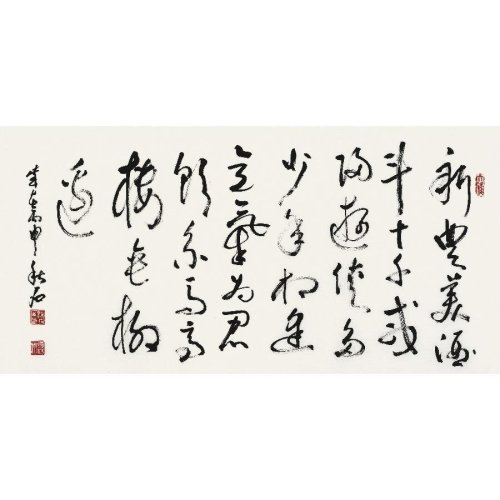 新豐美酒
斗十千咸
陽遊俠多
少年相逢
意氣为君
飲系馬高
樓垂柳
邊